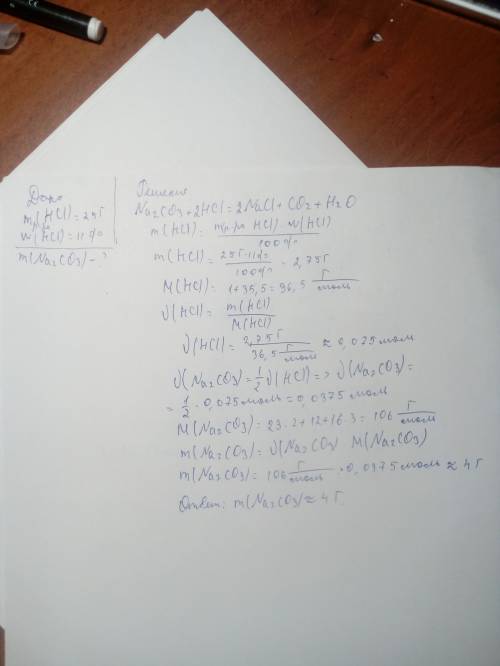 Дано
m р-ра (HCl) = 25г
w(HCl) = 11%
m(Na2CO3) - ?
Решение
Na2CO3 + 2HCl = 2NaCl + CO2 + H2O
m(HCl) = m р-ра HCl · w(HCl) / 100%
m(HCl) = 25г · 11% / 100% = 2,75г
M(HCl) = 1 + 35,5 = 36,5 г/моль
ν(HCl) = m(HCl) / M(HCl)
ν(HCl) = 2,75г / 36,5 г/моль ≈ 0,075 моль
ν(Na2CO3) = 1/2 ν(HCl) => ν(Na2CO3) =
= 1/2 · 0,075 моль = 0,0375 моль
M(Na2CO3) = 23·2 + 12 + 16·3 = 106 г/моль
m(Na2CO3) = ν(Na2CO3) · M(Na2CO3)
m(Na2CO3) = 106 г/моль · 0,0375 моль ≈ 4г
Ответ: m(Na2CO3) ≈ 4г